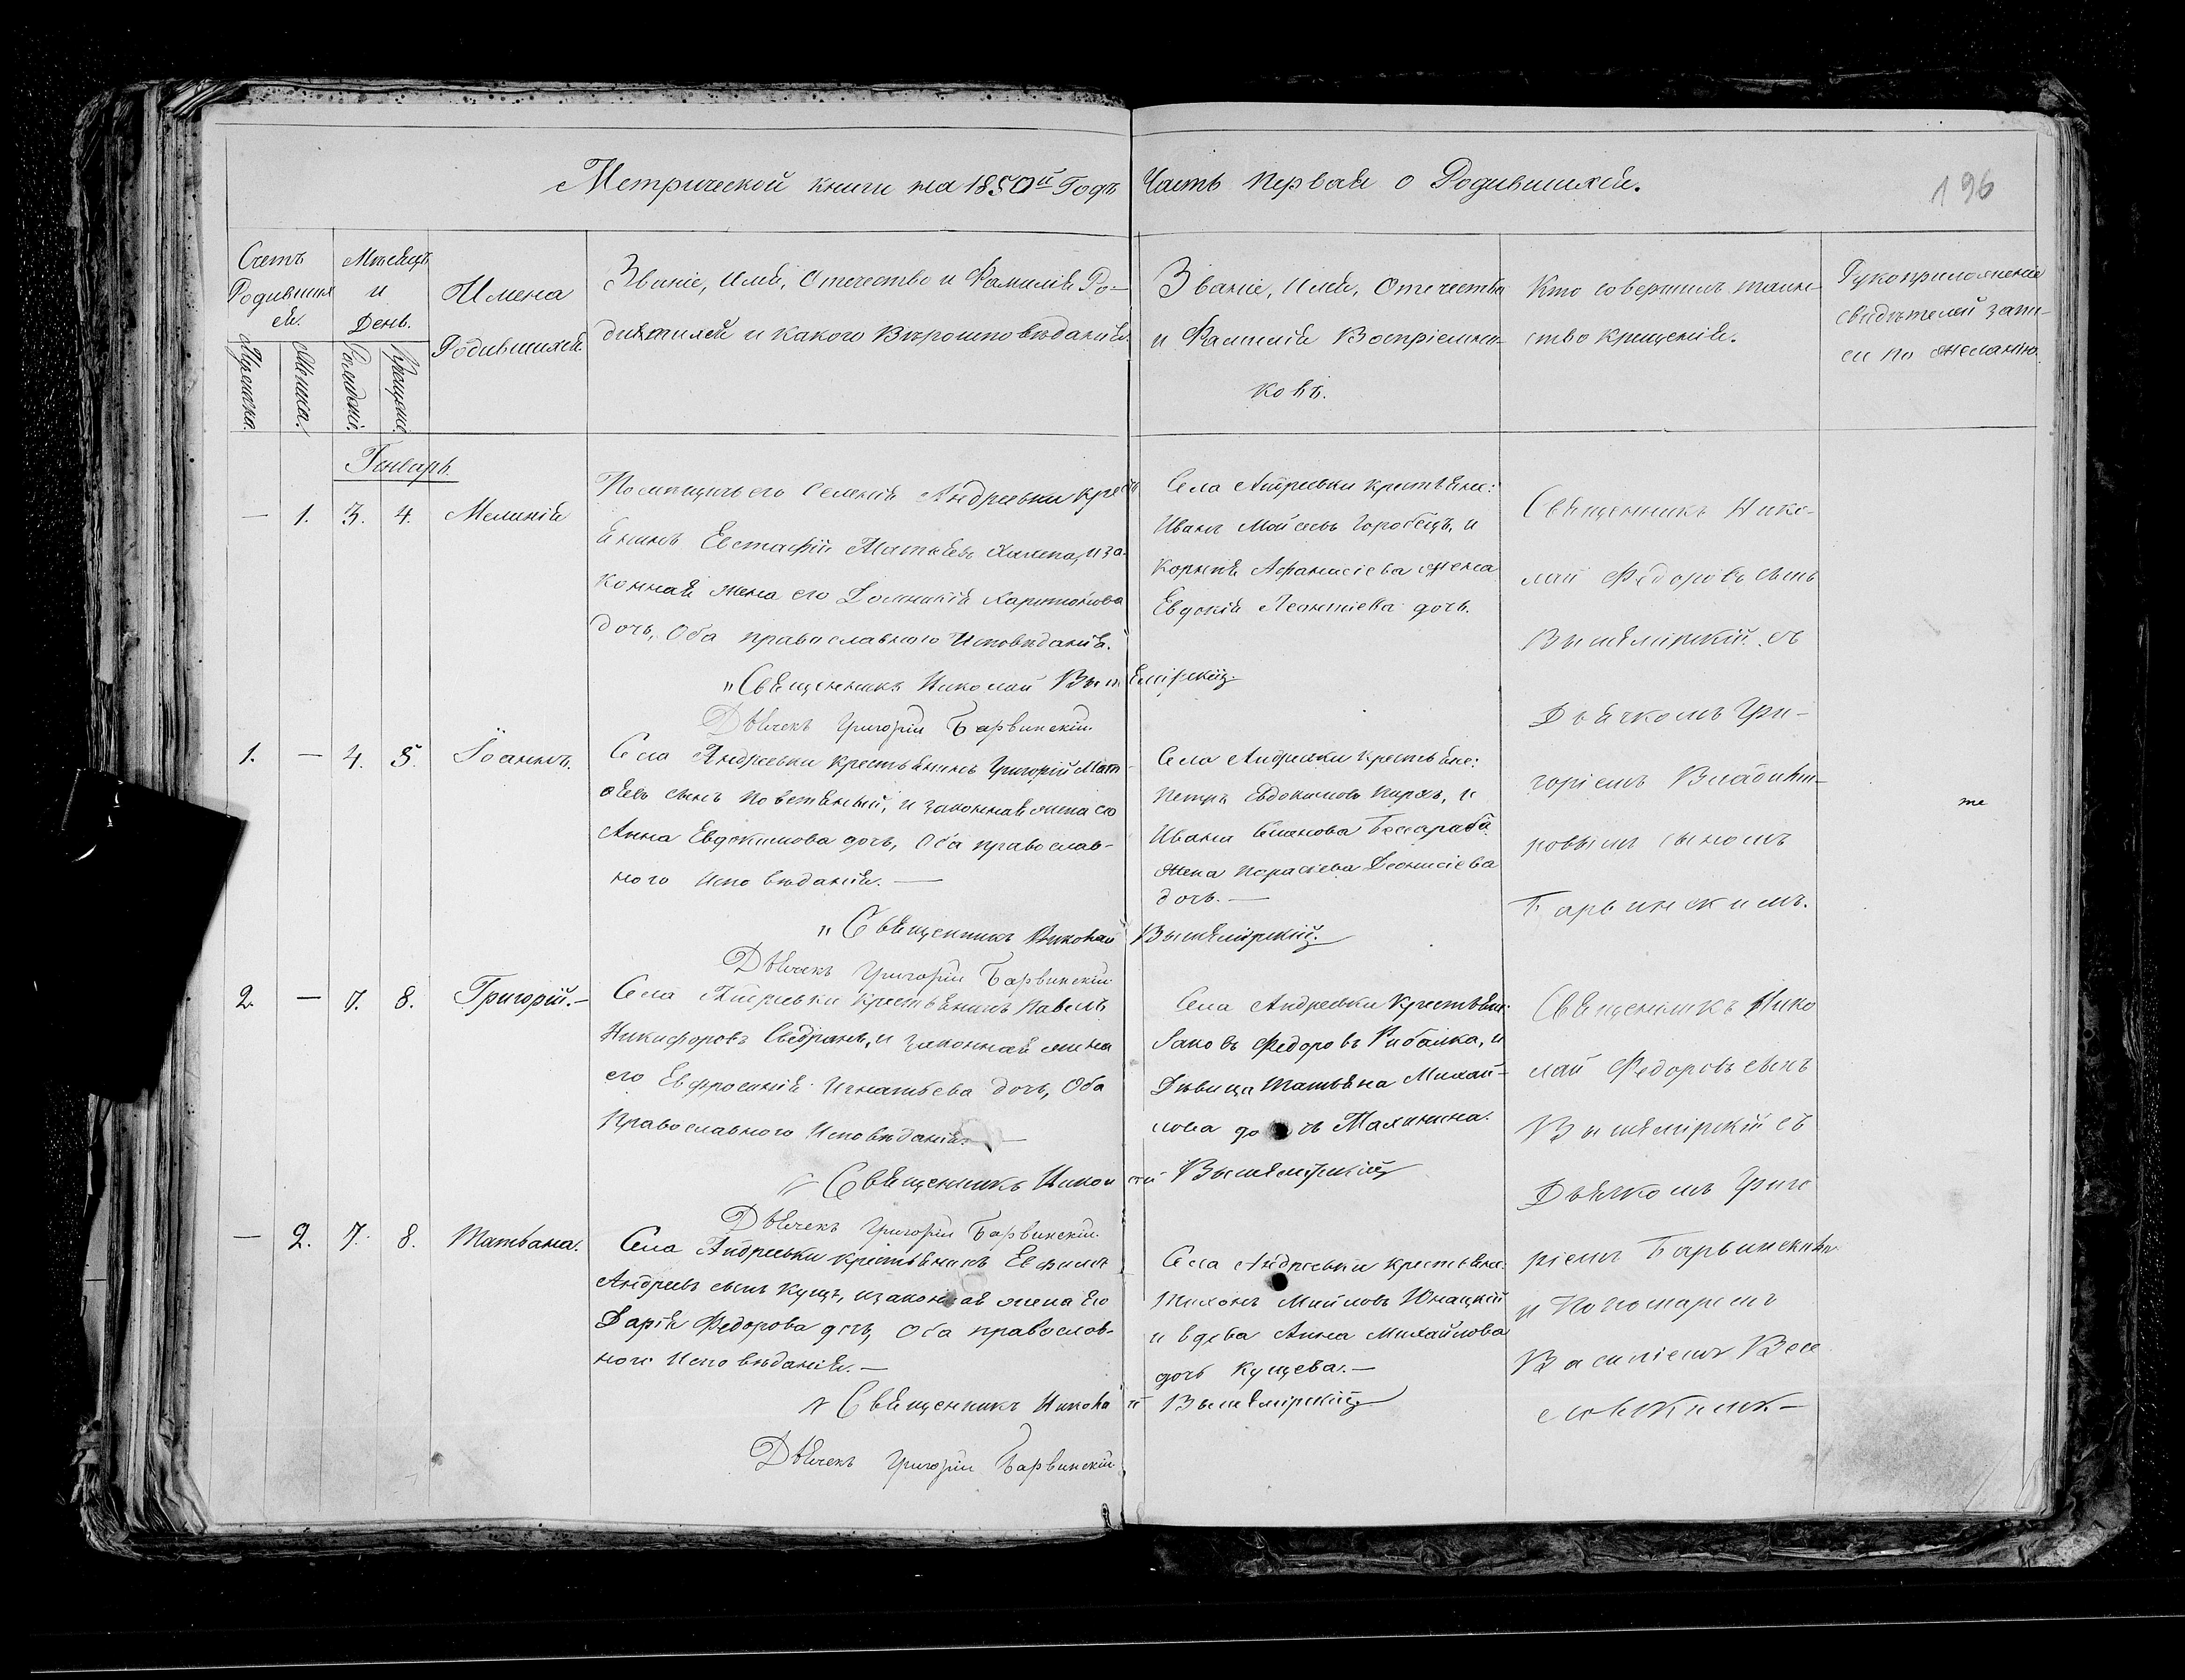 Метрической книги на 1850й Годъ Часть Первая о Родившихся.
196
Счетъ
Родившихся
Мужеска.
Женска.
Мѣсяцъ
и
День.
Рожденія.
Крещенія.
Имена
Родившихся.
Званіе, Имя, Отечество и Фамилія Ро-
дителей и какого Вѣроисповѣданія.
Званіе, Имя, Отечество
и Фамилія Воспріемни-
ковъ.
Кто совершилъ таин-
ство крещенія.
Рукоприложеніе
свидѣтелей запи-
си по желанію.
Январь.
— 1. 3. 4. Меланія
Помѣщичьего селенія Андреевки крест
янинъ Евстафій Матвѣевъ и за-
конная жена его Домникія Харитонова
дочь, Оба православного Исповѣданія.
Села Андреевки крестьяне:
Иванъ Мойсеевъ Горобецъ, и
Корнея Афанасіева жена
Евдокія Леонтіева дочь.
Священникъ Нико-
лай Федоровъ сынъ
Вышемірскій съ
Дьячкомъ Гри-
горіемъ Владими-
ровымъ сыномъ
Барвинскимъ.
"Священникъ Николай Вышемірскій
Дьячекъ Григорій Барвинскій
1. — 4. 5. Іоаннъ.
Села Андреевки крестьянинъ Григорій Мат
ѳеевъ сынъ и законная жена его
Анна Евдокимова дочь, Оба православ-
ного Исповѣданія. —
Села Андреевки крестьяне:
Петръ Евдокимовъ и
Ивана Семенова Бессараба
жена Параскева Деонисіева
дочь. —
"Священникъ Николай Вышемірскій
Дьячекъ Григорій Барвинскій
2. — 7. 8. Григорій. —
Села Андреевки крестьянинъ Павелъ
Никифоровъ и законная жена
его Евфросинія Игнатьева дочь, Оба
Православного Исповѣданія. —
Села Андреевки Крестьяне:
Яковъ Федоровъ Рибалка, и
Дѣвица Татьяна Михай-
лова дочь
Священникъ Нико
лай Федоровъ сынъ
Вышемірскій съ
Дьячкомъ Григо
ріемъ Барвинскимъ
и Пономаремъ
Василіемъ
"Священникъ Николай Вышемірскій
Дьячекъ Григорій Барвинскій
— 2. 7. 8. Татьяна.
Села Андреевки крестьянинъ Ефимъ
Андреевъ сынъ Кущъ, и законная жена его
Дарія Федорова дочь, Оба православ-
ного Исповѣданія. —
Села Андреевки крестьяне:
Тихонъ
и вдова Анна Михайлова
дочь Кущева. —
"Священникъ Николай Вышемірскій
Дьячекъ Григорій Барвинскій